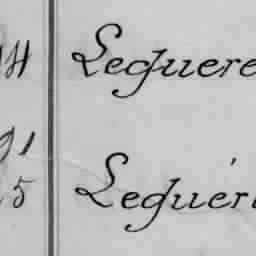 Leguere
91
5 Leguér